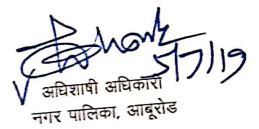 5/7/19
अधिशाषी अधिकारी
नगर पालिका, आबूरोड